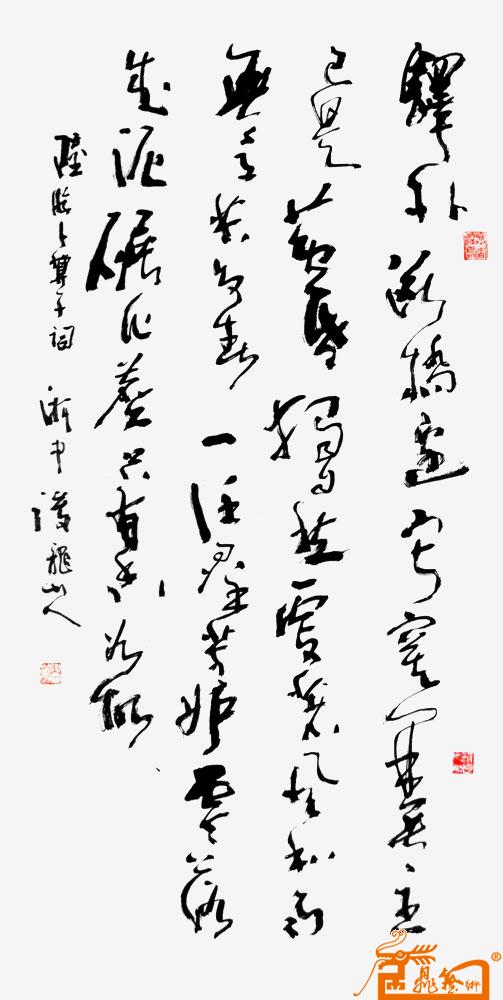 驛外斷橋邊寂寞開無主
已是黃昏獨自愁更著風和雨
無意苦爭春一任群芳妒零落
成泥碾作塵只有香如故
陸游卜算子詞 浙中 龍山人